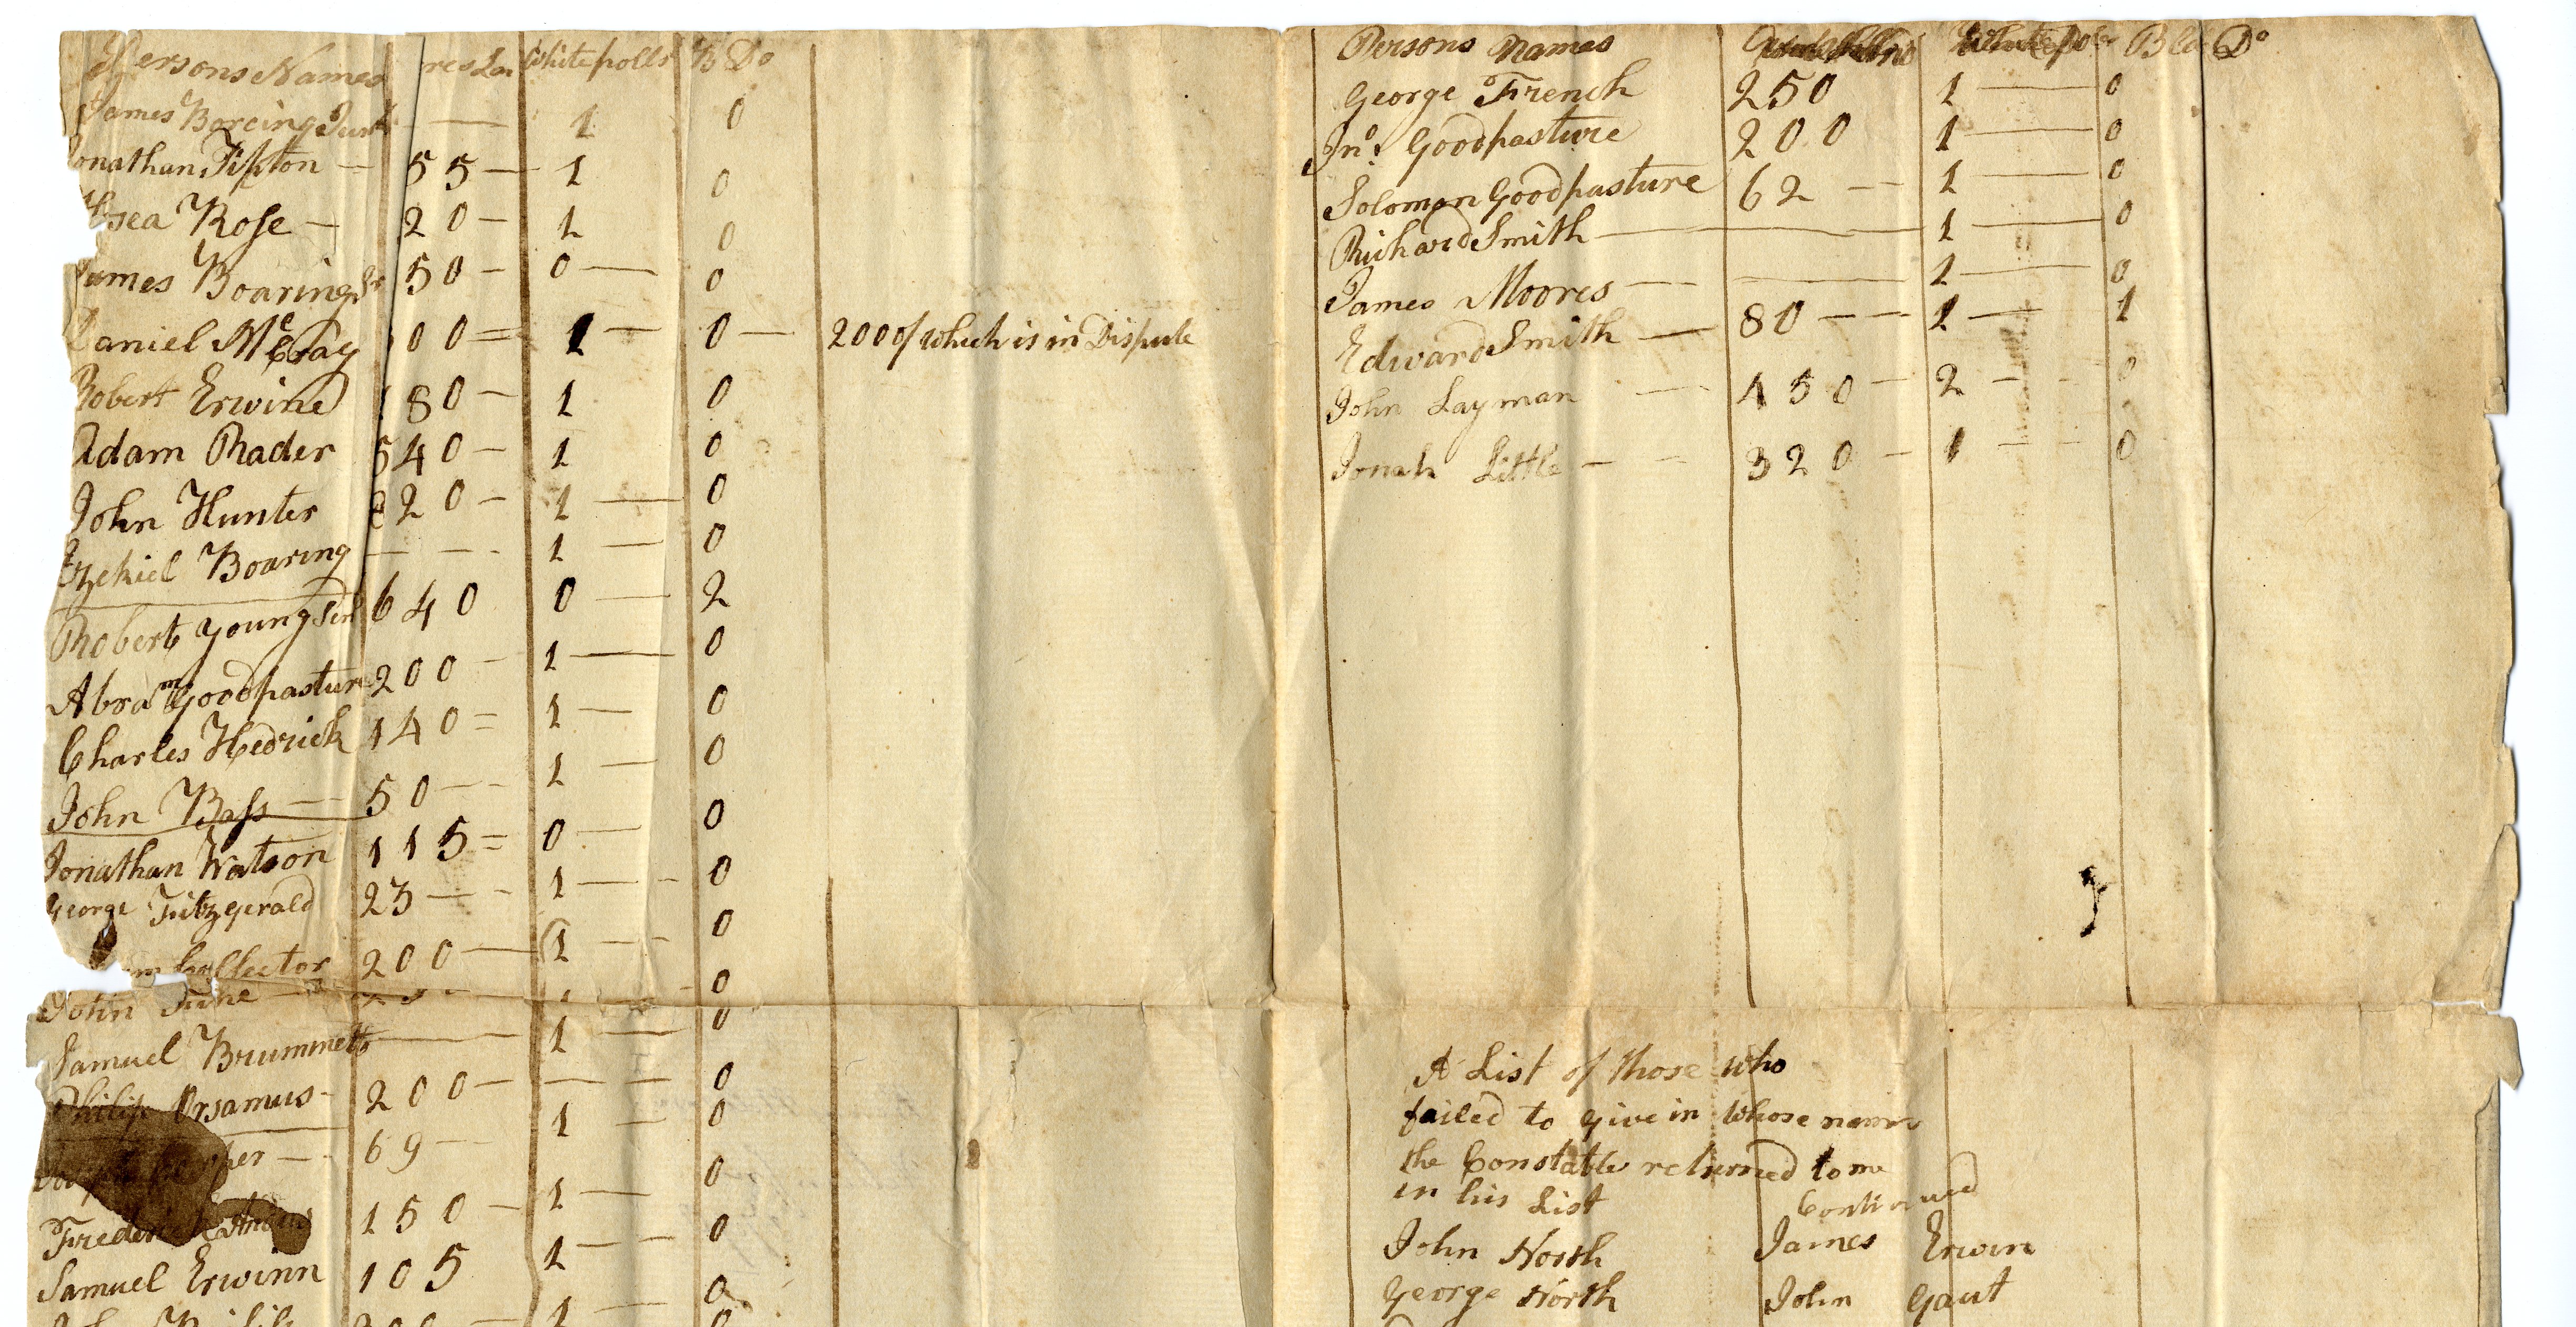 Persons Names res Lan White polls B Do
James Boreing Junr — 1 0
onathan Tipton — 55 — 1 0
Osea Rose — 20 — 1 0
James Boaring Sr 50 — 0 — 0
Daniel McCray 00 = 1 — 0 — 200 of which is in Dispute
Robert Erwine 180 — 1 0
Adam Rader 540 — 1 0
John Hunter 220 — 1 — 0
Ezekiel Boaring — — 1 — 0
Robert Young Sen 640 0 — 2
Abram Goodpasture 200 — 1 — 0
Charles Hedrick 140 = 1 — 0
John Bass — 50 — 1 — 0
Jonathan Watson 115 = 0 — 0
George Fitzgerald 23 — 1 — 0
200 — 1 — 0
John — 0
Samuel Brummett — 1 — 0
Philip Orsamus — 200 — — — 0
69 — 1 — 0
Frederick 150 — 1 — 0
Samuel Erwinn 105 1 — 0
John 1 — 0
Persons Names Bla Do
George French 250 1 — 0
Jno. Goodpasture 200 1 — 0
Solomon Goodpasture 62 — 1 — 0
Richard Smith — 1 — 0
James Moores — — 1 — 0
Edward Smith — 80 — 1 — 1
John Layman — 450 — 2 — 0
Jonah Little — 320 — 1 — 0
A List of those who
failed to give in whose names
the Constable returned to me
in his List Continued
John North James Erwin
George North John Gaut